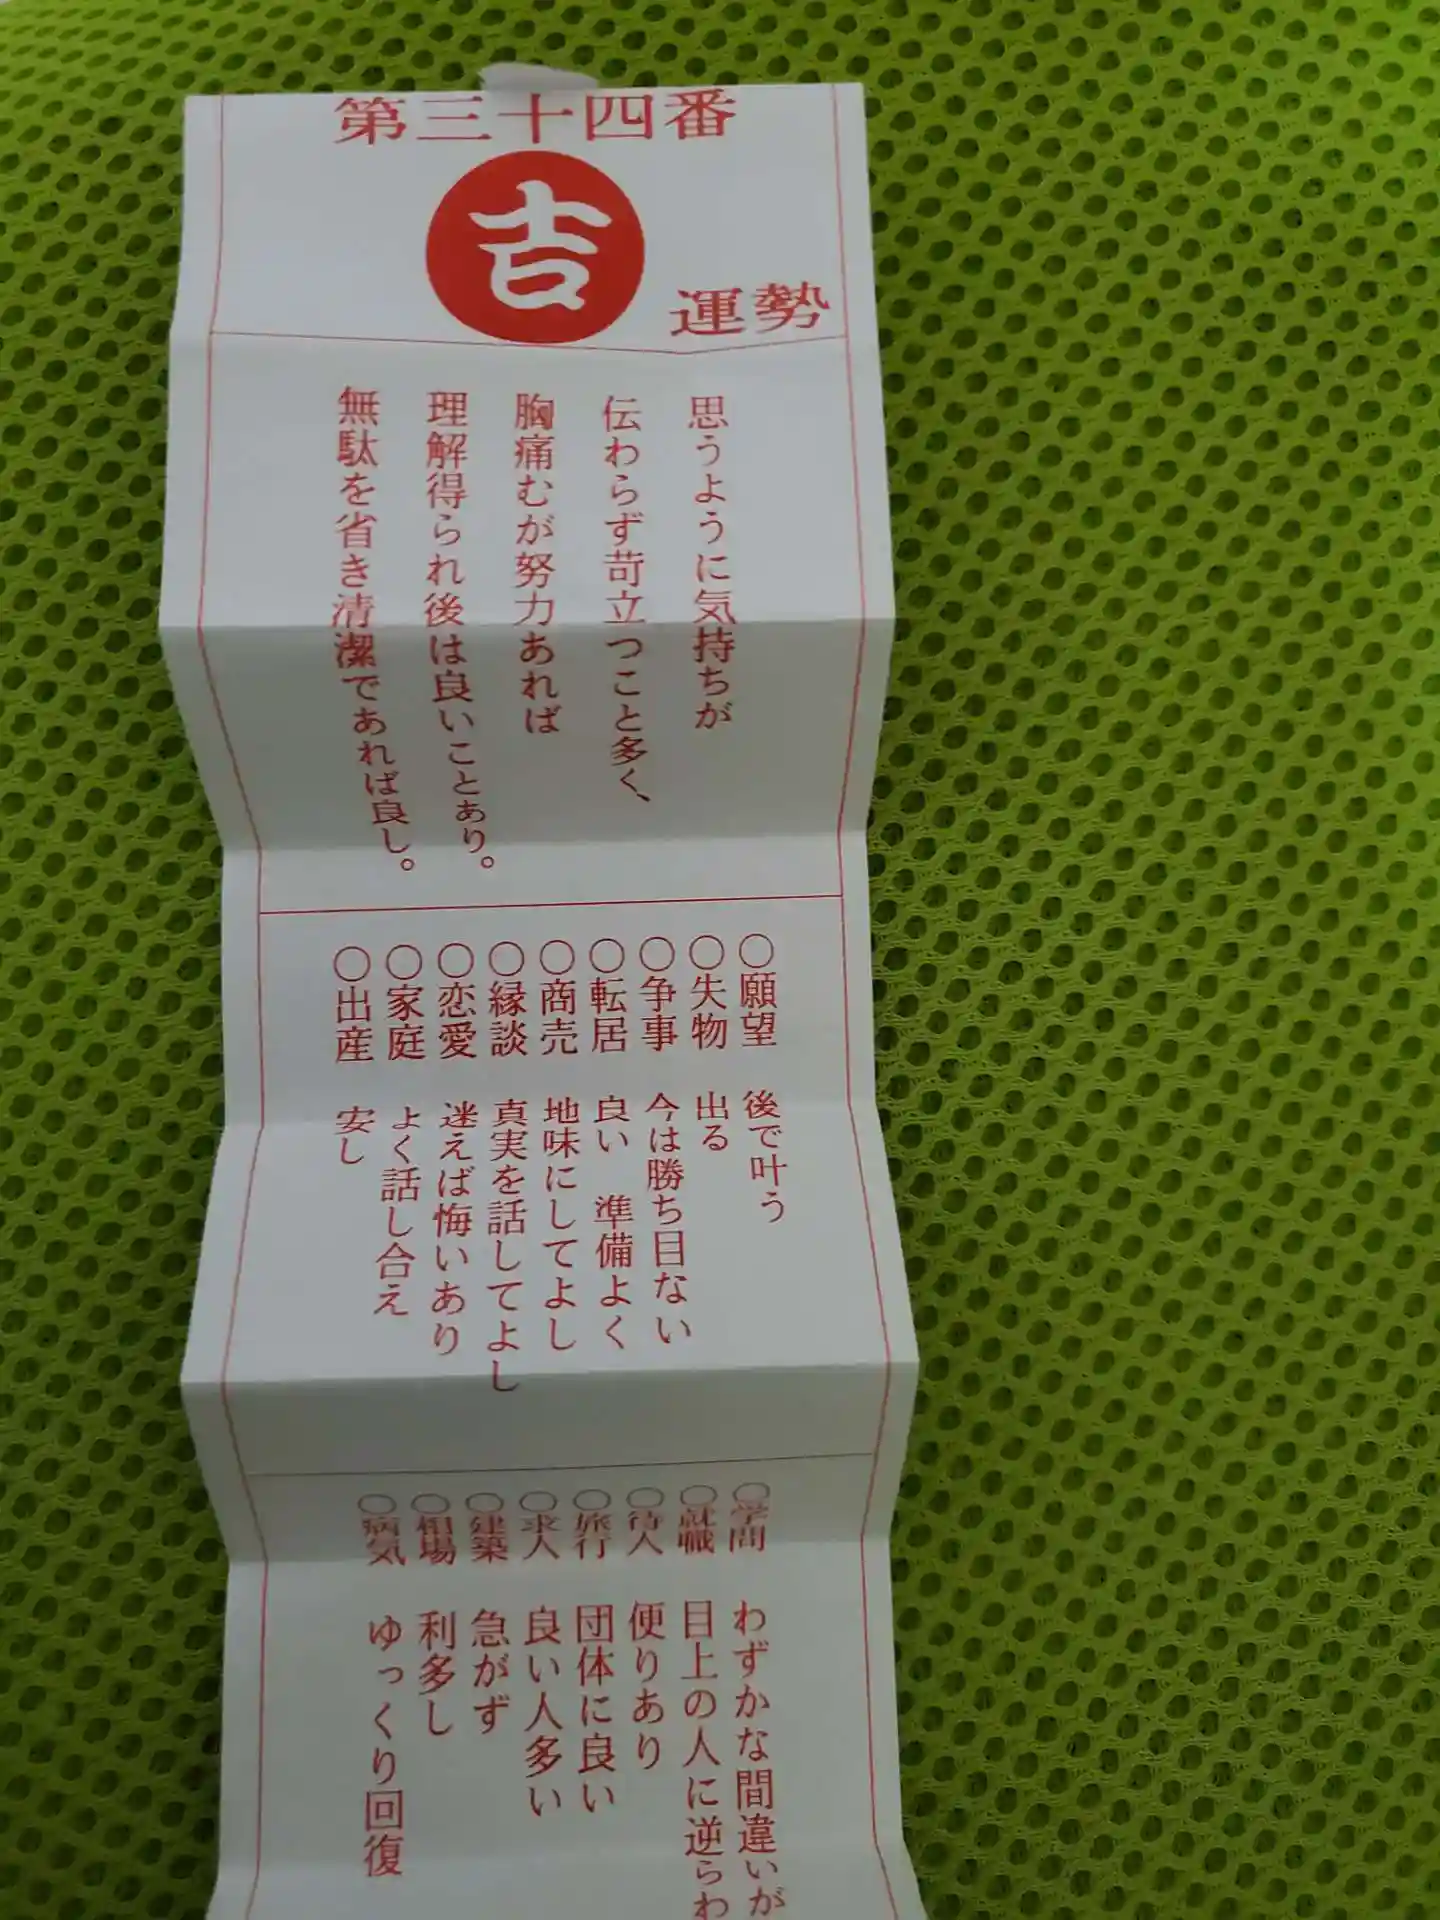 第三十四番
吉
運勢
思うように気持ちが
伝わらず苛立つこと多く、
胸痛むが努力あれば
理解得られ後は良いことあり。
無駄を省き清潔であれば良し。
○願望 後で叶う
○失物 出る
○争事 今は勝ち目ない
○転居 良い 準備よく
○商売 地味にしてよし
○縁談 真実を話してよし
○恋愛 迷えば悔いあり
○家庭 よく話し合え
○出産 安し
○学問 わずかな間違いが
○就職 目上の人に逆らわ
○待人 便りあり
○旅行 団体に良い
○求人 良い人多い
○建築 急がず
○相場 利多し
○病気 ゆっくり回復